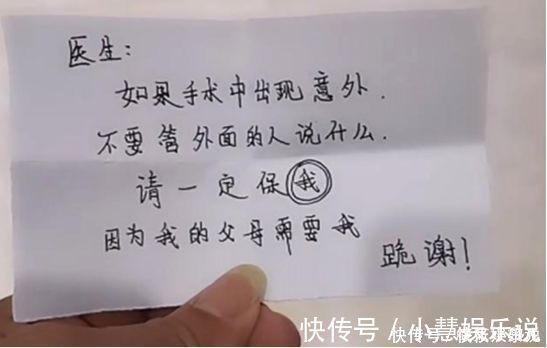 医生:
如果手术中出现意外.
不要管外面的人说什么.
请一定保我
因为我的父母需要我
跪谢!
快传号 / 小慧娱乐说